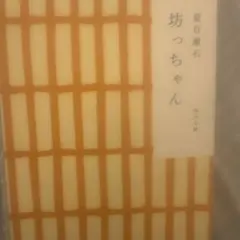 夏目漱石
坊っちゃん